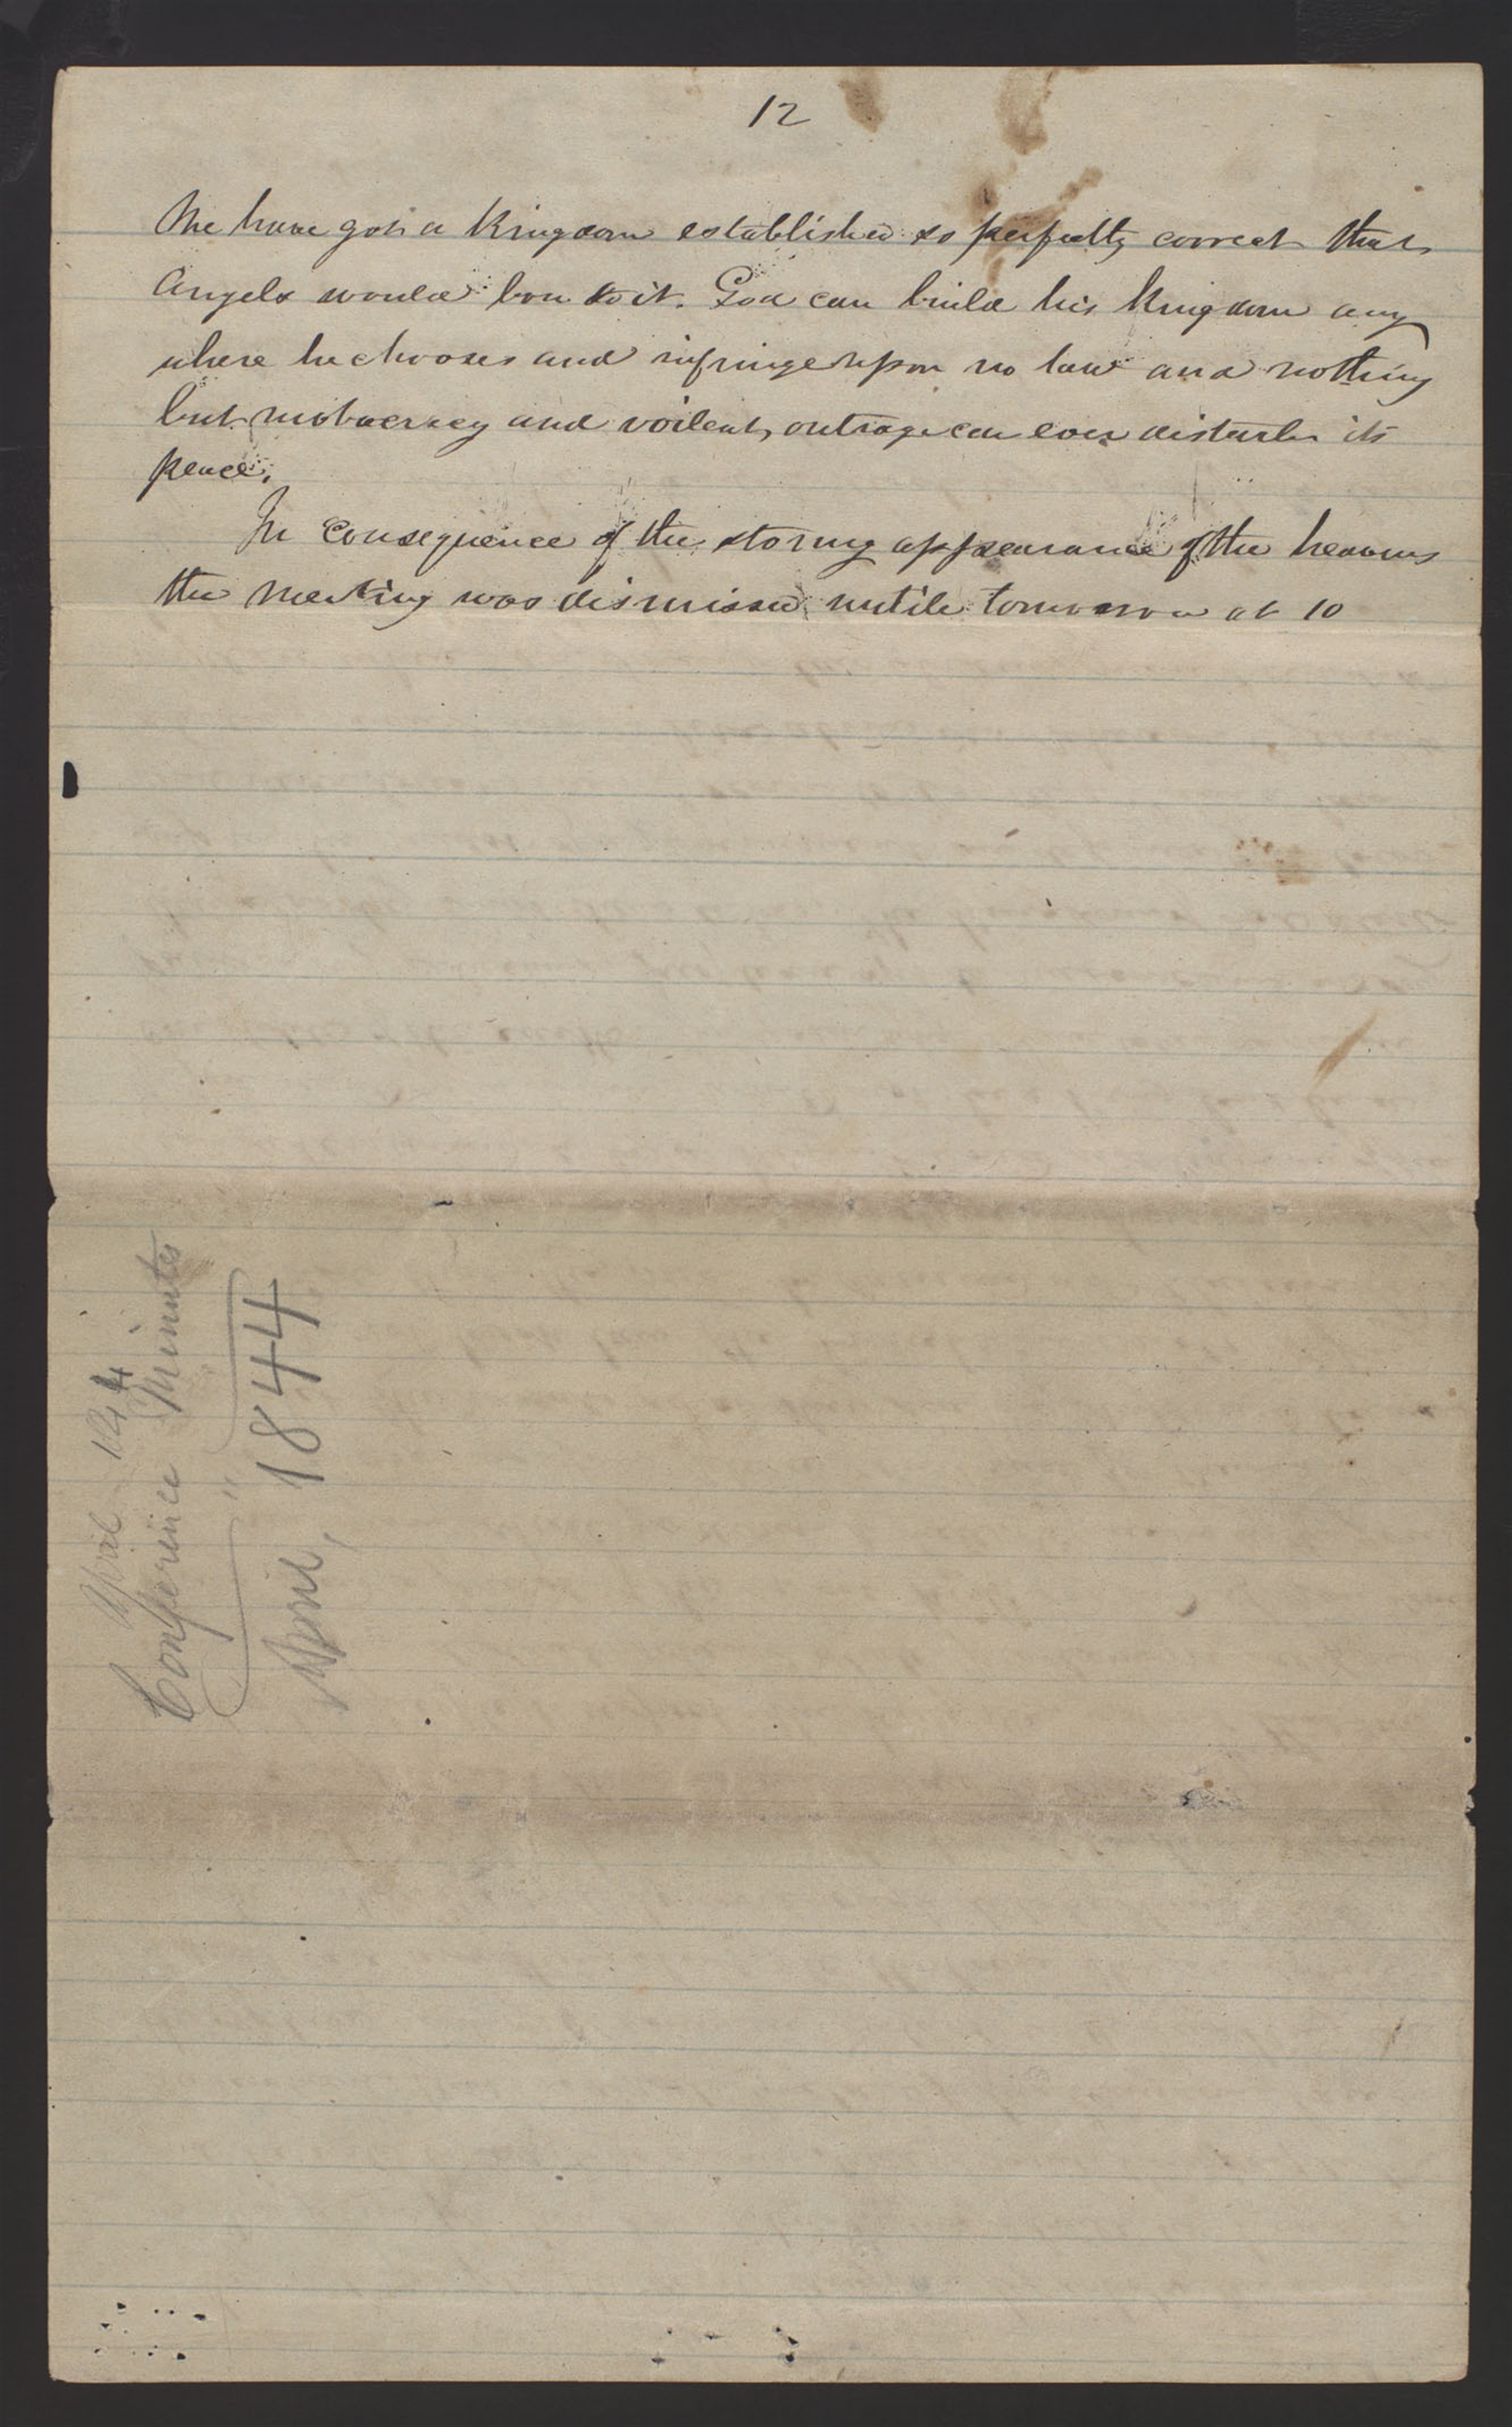 12
We have got a Kingdom established so perfectly correct that
Angels would bow to it. God can build his Kingdom any
where he chooses and infringe upon no law and nothing
but mobocracy and voilent, outrage can ever disturb its
peace.
In consequence of the stormy appearance of the heavens
the meeting was dismissed untile tomorrow at 10
April 1844
Conference Minutes
"
April, 1844